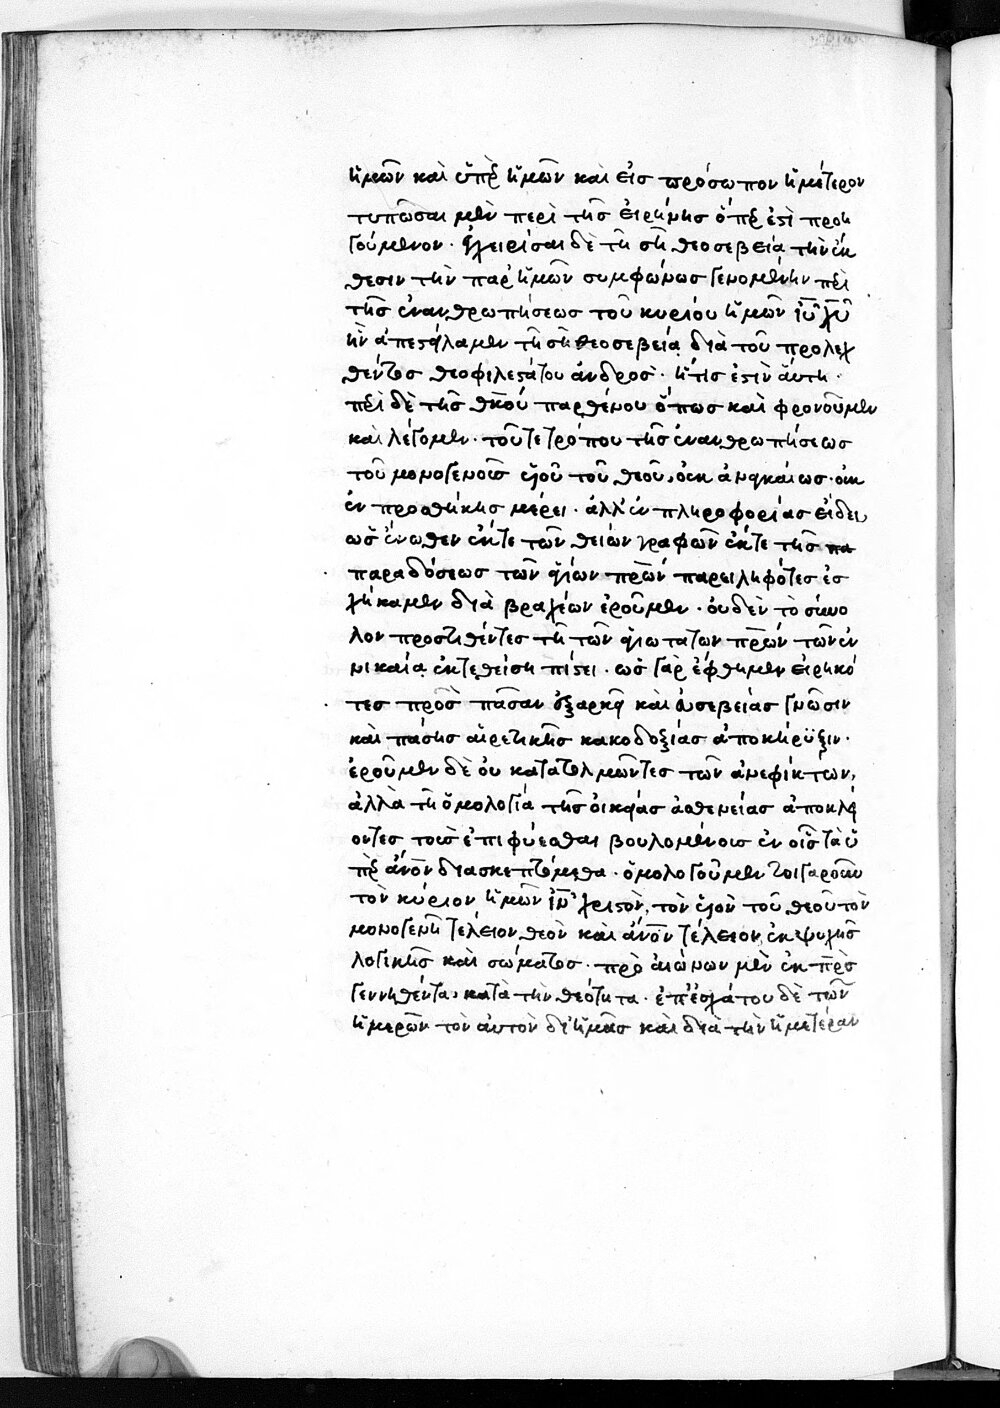 ἡμῶν καὶ ὑπὲρ ἡμῶν καὶ εἰς πρόσωπον ἡμέτερον
τυπῶσαι μὲν περὶ τῆς εἰρήνης ὅπερ ἐστὶ προη
γούμενον · ἐγχειρίσαι δὲ τῆ σῆ θεοσεβεία τὴν ἔκ
θεσιν τὴν παρ' ἡμῶν συμφώνως γενομένην περὶ
τῆς ἐνανθρωπήσεως τοῦ κυρίου ἡμῶν ἰῦ χῦ
ἣν ἀπεστάλαμεν τῆ σῆ θεοσεβεία διὰ τοῦ προλεχ
θέντος θεοφιλεστάτου ἀνδρός · ἥτις ἐστὶν αὕτη ·
περὶ δὲ τῆς θκ̅ου παρθένου ὅπως καὶ φρονοῦμεν
καὶ λέγομεν · τοῦ τε τρόπου τῆς ἐνανθρωπήσεως
τοῦ μονογενοῦς υἱοῦ τοῦ θεοῦ, ἀναγκαίως · οὐκ
ἐν προσθήκης μέρει · ἀλλ' ἐν πληροφορίας εἴδει
ὡς ἄνωθεν ἔκ τε τῶν θείων γραφῶν ἔκ τε τῆς πα
παραδόσεως τῶν ἁγίων πρ̅ων παρειληφότες ἐσ
χήκαμεν διὰ βραχέων ἐροῦμεν · οὐδὲν τὸ σύνο
λον προστιθέντες τῆ τῶν ἁγιωτάτων πρ̅ων τῶν ἐν
νικαία ἐκτεθείση πίστει · ὡς γὰρ ἔφθημεν εἰρηκό
τες πρὸς πᾶσαν ἐξαρκεῖ καὶ εὐσεβείας γνῶσιν
καὶ πάσης αἱρετικῆς κακοδοξίας ἀποκήρυξιν ·
ἐροῦμεν δὲ οὐ κατατολμῶντες τῶν ἀνεφίκτων,
ἀλλὰ τῆ ὁμολογία τῆς οἰκείας ἀσθενείας ἀποκλεί
οντες τοῖς ἐπιφύεσθαι βουλομένοις ἐν οἷς τὰ ὑ
πὲρ ἄνον διασκεπτόμεθα · ὁμολογοῦμεν τοιγαροῦν
τὸν κύριον ἡμῶν ἰῦν χριστὸν, τὸν υἱὸν τοῦ θεοῦ τὸν
μονογενῆ τέλειον θεὸν καὶ ἄνον τέλειον, ἐκ ψυχῆς
λογικῆς καὶ σώματος · πρὸ αἰώνων μὲν ἐκ πρ̅ς
γεννηθέντα, κατὰ τὴν θεότητα · ἐπ' ἐσχάτου δὲ τῶν
ἡμερῶν τὸν αὐτὸν δι' ἡμᾶς καὶ διὰ τὴν ἡμετέραν